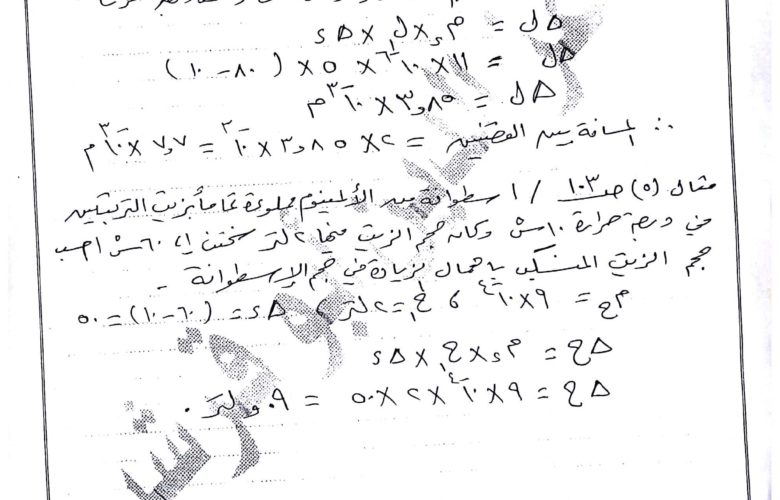 Δل = م ط × ل١ × Δد
Δل = ١١ × ١٠⁻⁶ × ٥ × (٨٠ − ١٠)
Δل = ٣٫٨٥ × ١٠⁻³ م
∴ المسافة بين القضيبين = ٢ × ٣٫٨٥ × ١٠⁻³ = ٧٫٧ × ١٠⁻³ م
مثال (٥) صـ ١٠٣ / اسطوانة من الألمنيوم مملوءة تماماً بزيت التربنتين
في درجة حرارة ١٠°س وكان حجم الزيت فيها ٢ لتر سخنت إلى ٦٠°س احسب
حجم الزيت المنسكب بإهمال الزيادة في حجم الإسطوانة .
م ح = ٩ × ١٠⁻⁴ ، ح١ = ٢ لتر ، Δد = (٦٠ − ١٠) = ٥٠
Δح = م ح × ح١ × Δد
Δح = ٩ × ١٠⁻⁴ × ٢ × ٥٠ = ٠٫٠٩ لتر .